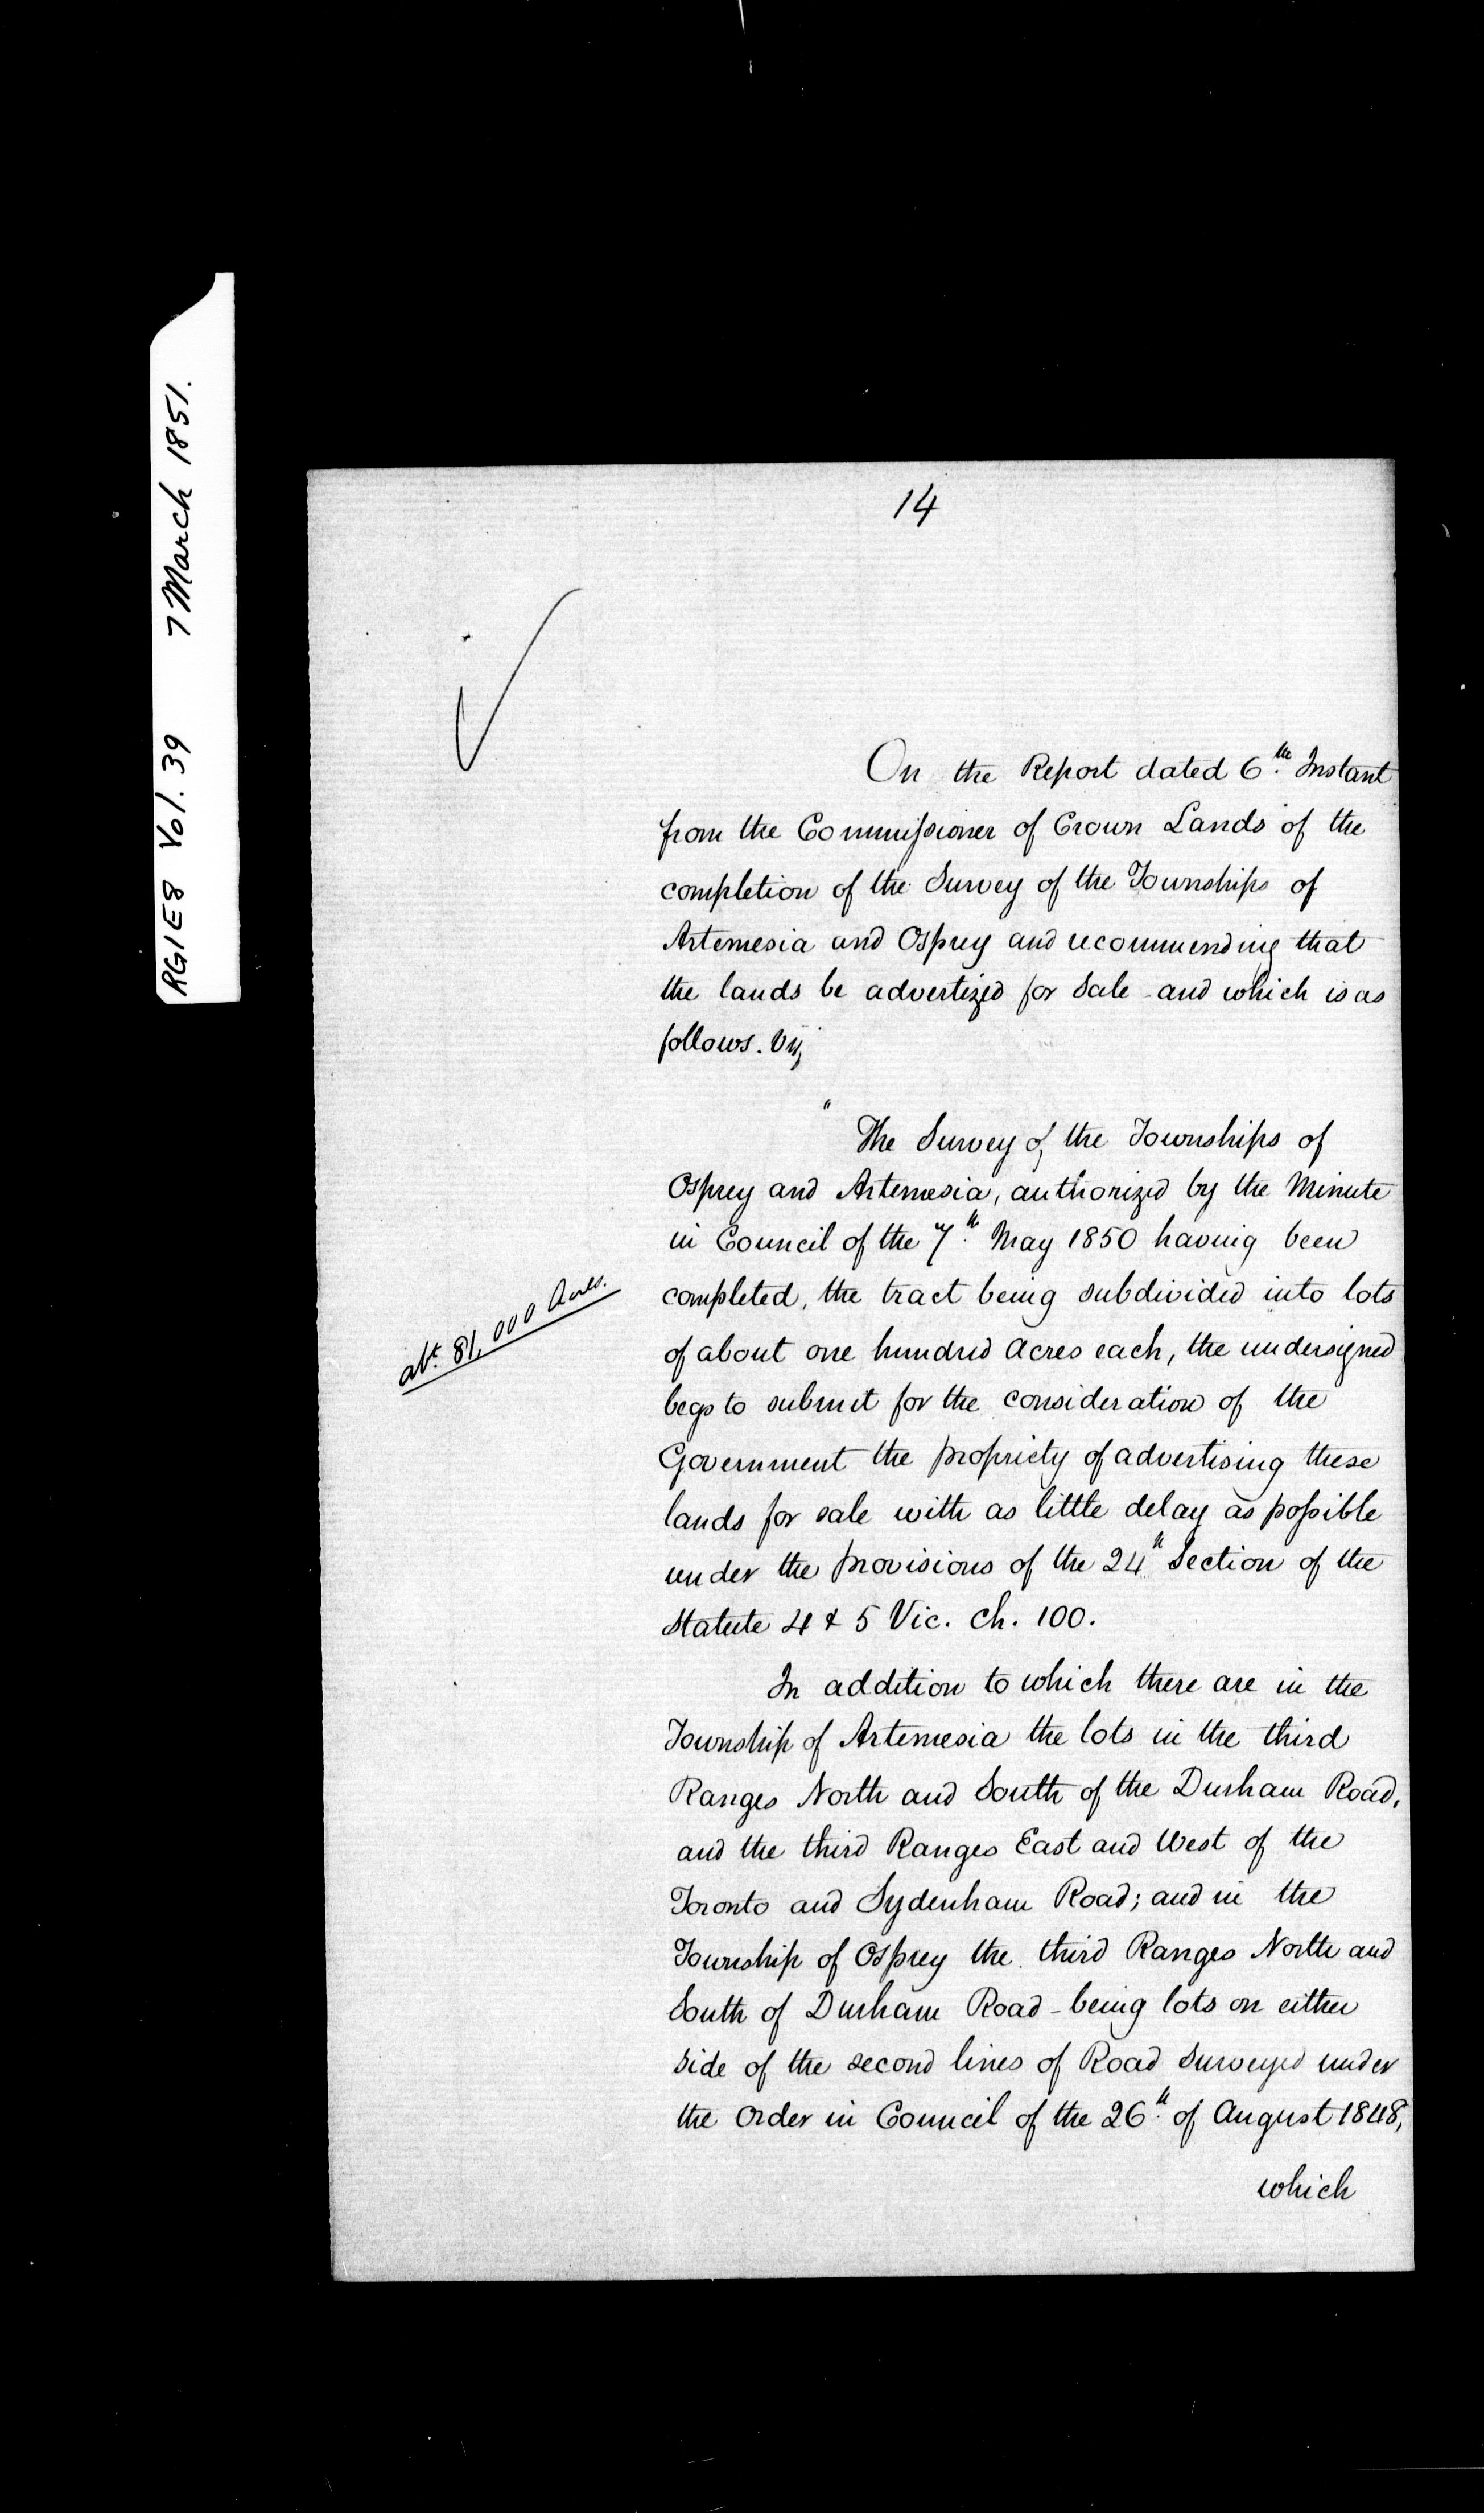 RG1E8 Vol. 39 7 March 1851.
14
On the Report dated 6th. Instant
from the Commissioner of Crown Lands of the
completion of the Survey of the Townships of
Artemesia and Osprey and recommending that
the lands be advertized for Sale - and which is as
follows. Viz
" The Survey of the Townships of
Osprey and Artemesia, authorized by the Minute
in Council of the 7th. May 1850 having been
completed, the tract being subdivided into lots
abt. 81,000 Acres.
of about one hundred Acres each, the undersigned
begs to submit for the consideration of the
Government the propriety of advertising these
lands for sale with as little delay as possible
under the provisions of the 24th Section of the
Statute 4 & 5 Vic. Ch. 100.
In addition to which there are in the
Township of Artemesia the lots in the third
Ranges North and South of the Durham Road,
and the third Ranges East and West of the
Toronto and Sydenham Road; and in the
Township of Osprey the third Ranges North and
South of Durham Road - being lots on either
side of the second lines of Road Surveyed under
the Order in Council of the 26th. of August 1848,
which